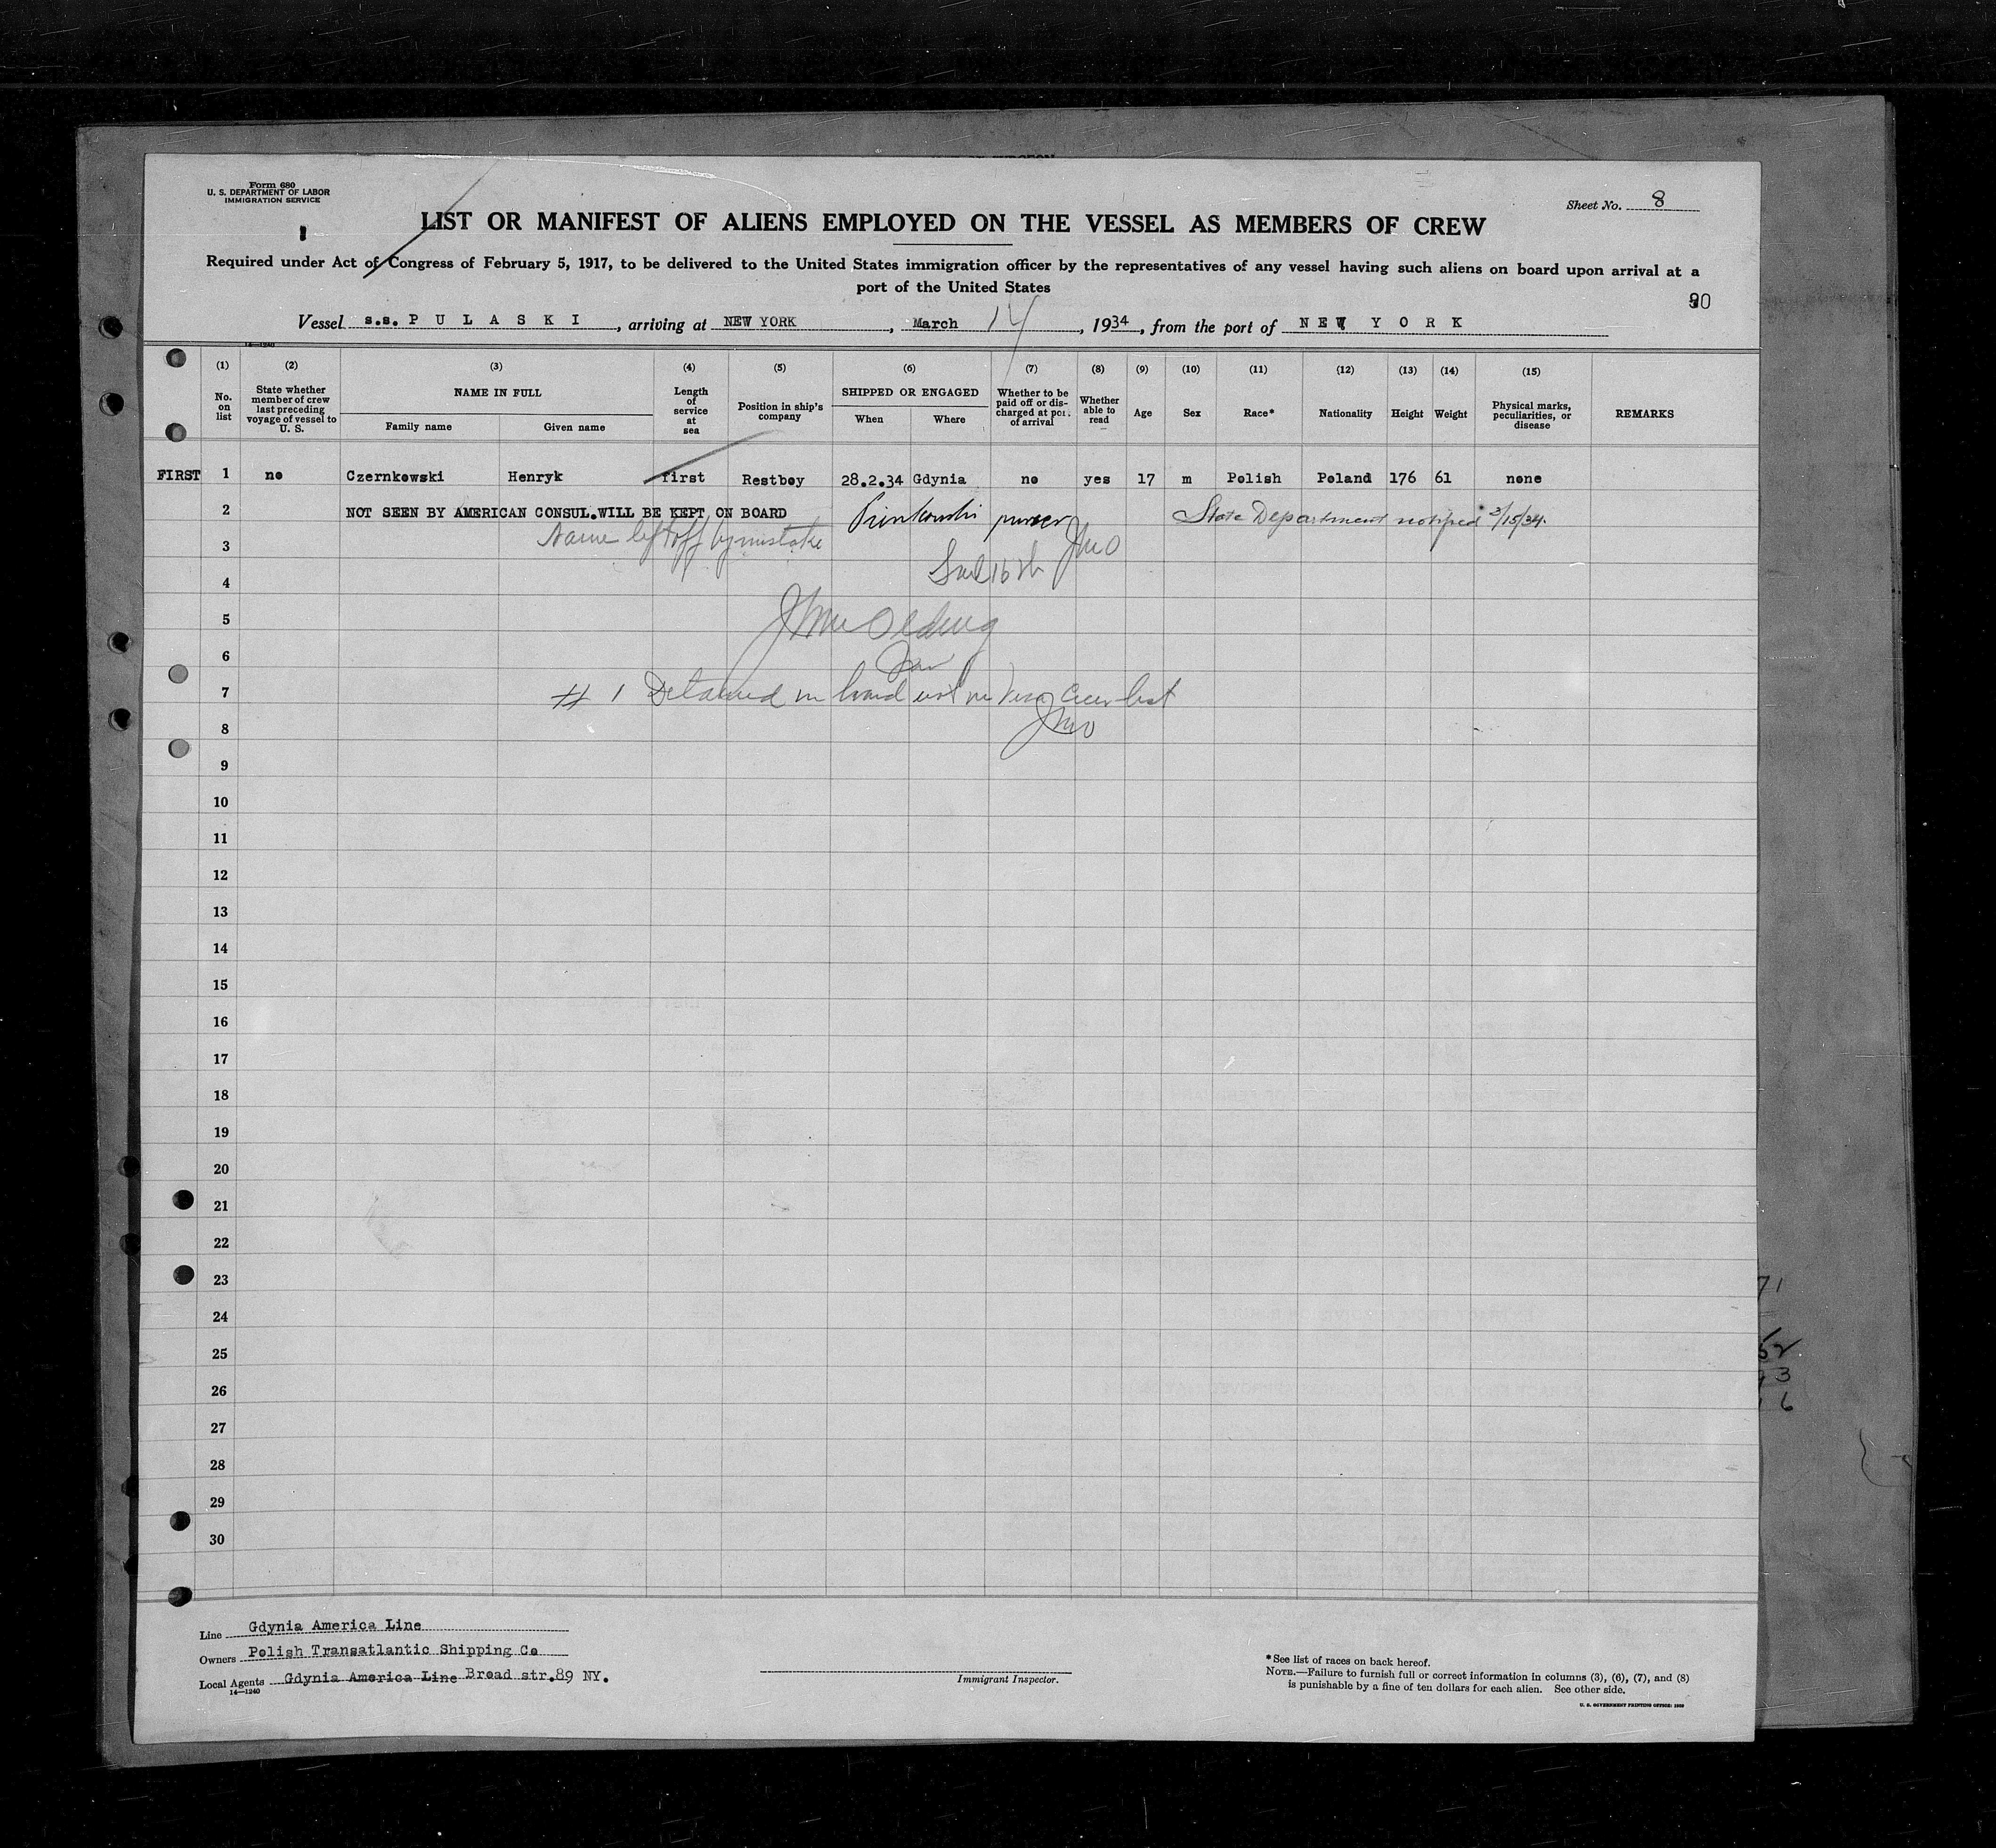 Form 680
U. S. DEPARTMENT OF LABOR
IMMIGRATION SERVICE
Sheet No. 8
LIST OR MANIFEST OF ALIENS EMPLOYED ON THE VESSEL AS MEMBERS OF CREW
Required under Act of Congress of February 5, 1917, to be delivered to the United States immigration officer by the representatives of any vessel having such aliens on board upon arrival at a
port of the United States
90
Vessel s.s. P U L A S K I, arriving at NEW YORK, March 14, 1934, from the port of N E W Y O R K
14—1240
(1) (2) (3) (4) (5) (6) (7) (8) (9) (10) (11) (12) (13) (14) (15)
No. on list
State whether member of crew last preceding voyage of vessel to U. S.
NAME IN FULL
Family name Given name
Length of service at sea
Position in ship's company
SHIPPED OR ENGAGED
When Where
Whether to be paid off or discharged at port of arrival
Whether able to read
Age
Sex
Race*
Nationality
Height
Weight
Physical marks, peculiarities, or disease
REMARKS
FIRST 1 no Czernkowski Henryk first Restboy 28.2.34 Gdynia no yes 17 m Polish Poland 176 61 none
2 NOT SEEN BY AMERICAN CONSUL.WILL BE KEPT ON BOARD purser State Department notified 3/15/34.
Name left off by mistake JMO
3
16th
4
5
6
7 # 1 Detained on board not on Visa Crew list
JMO
8
9
10
11
12
13
14
15
16
17
18
19
20
21
22
23
24
25
26
27
28
29
30
71
52
93
16
Line Gdynia America Line
Owners Polish Transatlantic Shipping Co
Local Agents Gdynia America Line Broad str.89 NY.
14—1240
Immigrant Inspector.
*See list of races on back hereof.
NOTE.—Failure to furnish full or correct information in columns (3), (6), (7), and (8)
is punishable by a fine of ten dollars for each alien. See other side.